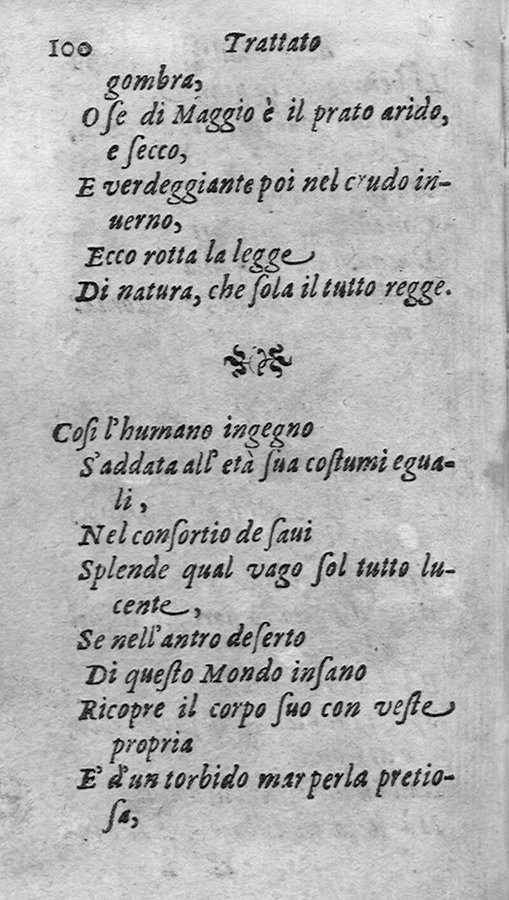 100 Trattato
gombra,
O ſe di Maggio è il prato arido,
e ſecco,
E verdeggiante poi nel crudo in-
uerno,
Ecco rotta la legge
Di natura, che ſola il tutto regge.
Coſi l'humano ingegno
S'addata all' età ſua coſtumi egua-
li,
Nel conſortio de ſaui
Splende qual vago ſol tutto lu-
cente,
Se nell'antro deſerto
Di queſto Mondo inſano
Ricopre il corpo ſuo con veſte
propria
E' d'un torbido mar perla pretio-
ſa,